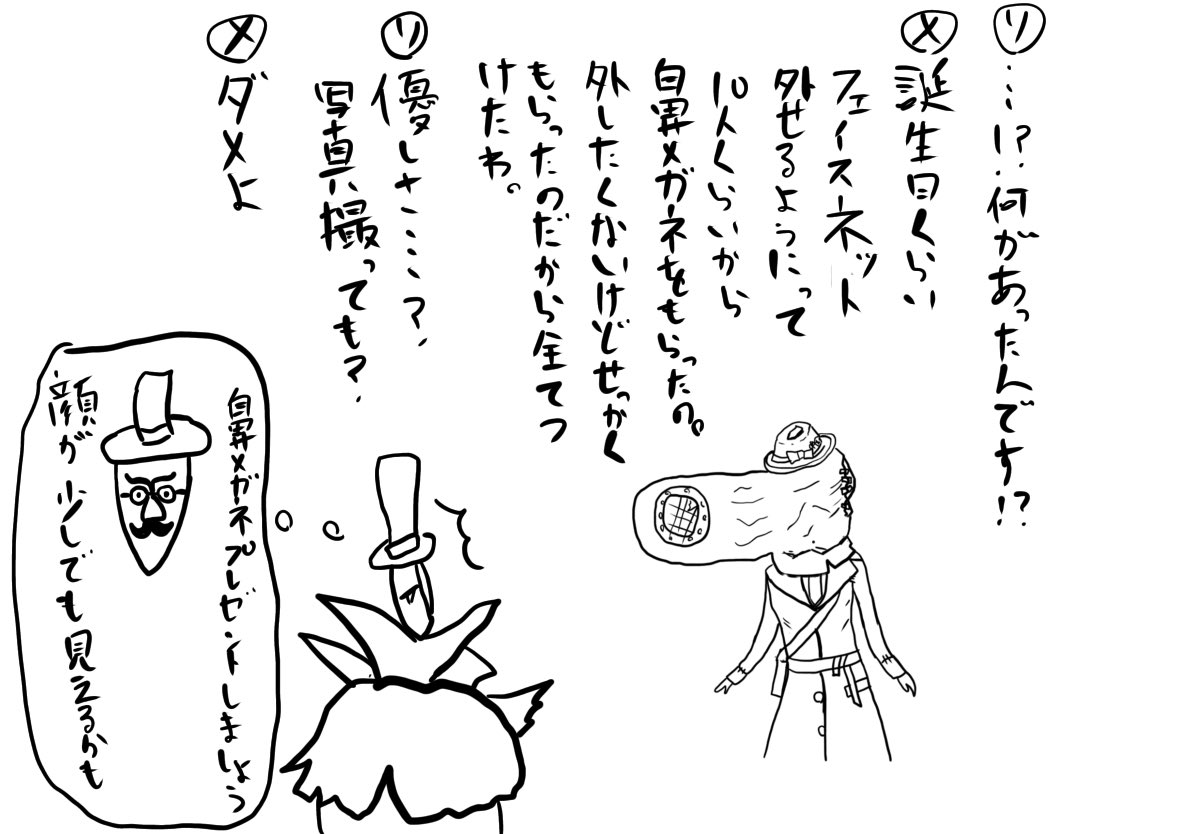 リ …!?何があったんです!?
メ 誕生日くらい
フェースネット
外せるようにって
10人くらいから
鼻メガネをもらったの。
外したくないけどせっかく
もらったのだから全てつ
けたわ。
リ 優しさ…?
写真撮っても?
メ ダメよ
鼻メガネプレゼントしましょう
顔が少しでも見えるかも